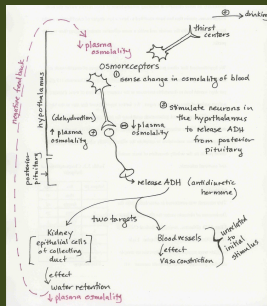 ⊕ → drinking
thirst
centers
↓ plasma
osmolality
Osmoreceptors
① sense change in osmolality of blood
② stimulate neurons in
the hypthalamus
to release ADH
from posterior
pituitary
negative feedback
hypothalamus
(dehydration)
↑ plasma
osmolality
⊕
⊖ ↓ plasma
osmolality
posterior
pituitary
release ADH (antidiuretic
hormone)
two targets
Kidney
epithelial cells
of collecting
duct
Blood vessels
↓ effect
Vasoconstriction
unrelated to
initial
stimulus
↓ effect
water retention
↓ plasma osmolality